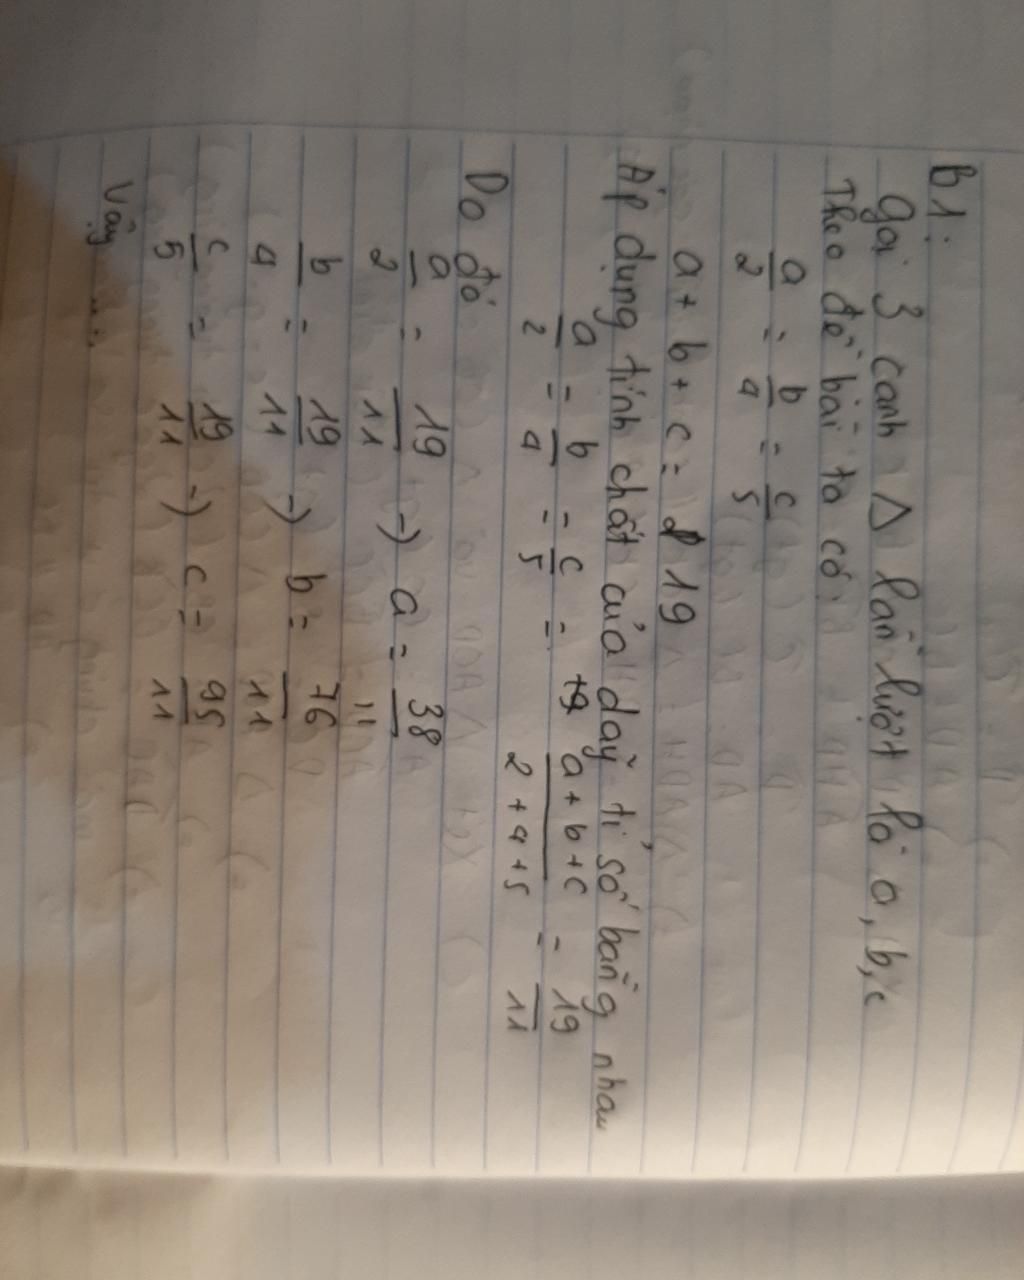 B1:
gọi 3 cạnh Δ lần lượt là a, b, c
Theo đề bài ta có
a/2 = b/4 = c/5
a + b + c = 19
Áp dụng tính chất của dãy tỉ số bằng nhau
a/2 = b/4 = c/5 = a+b+c/2+4+5 = 19/11
Do đó
a/2 = 19/11 -) a = 38/11
b/4 = 19/11 -) b = 76/11
c/5 = 19/11 -) c = 95/11
Vậy ...